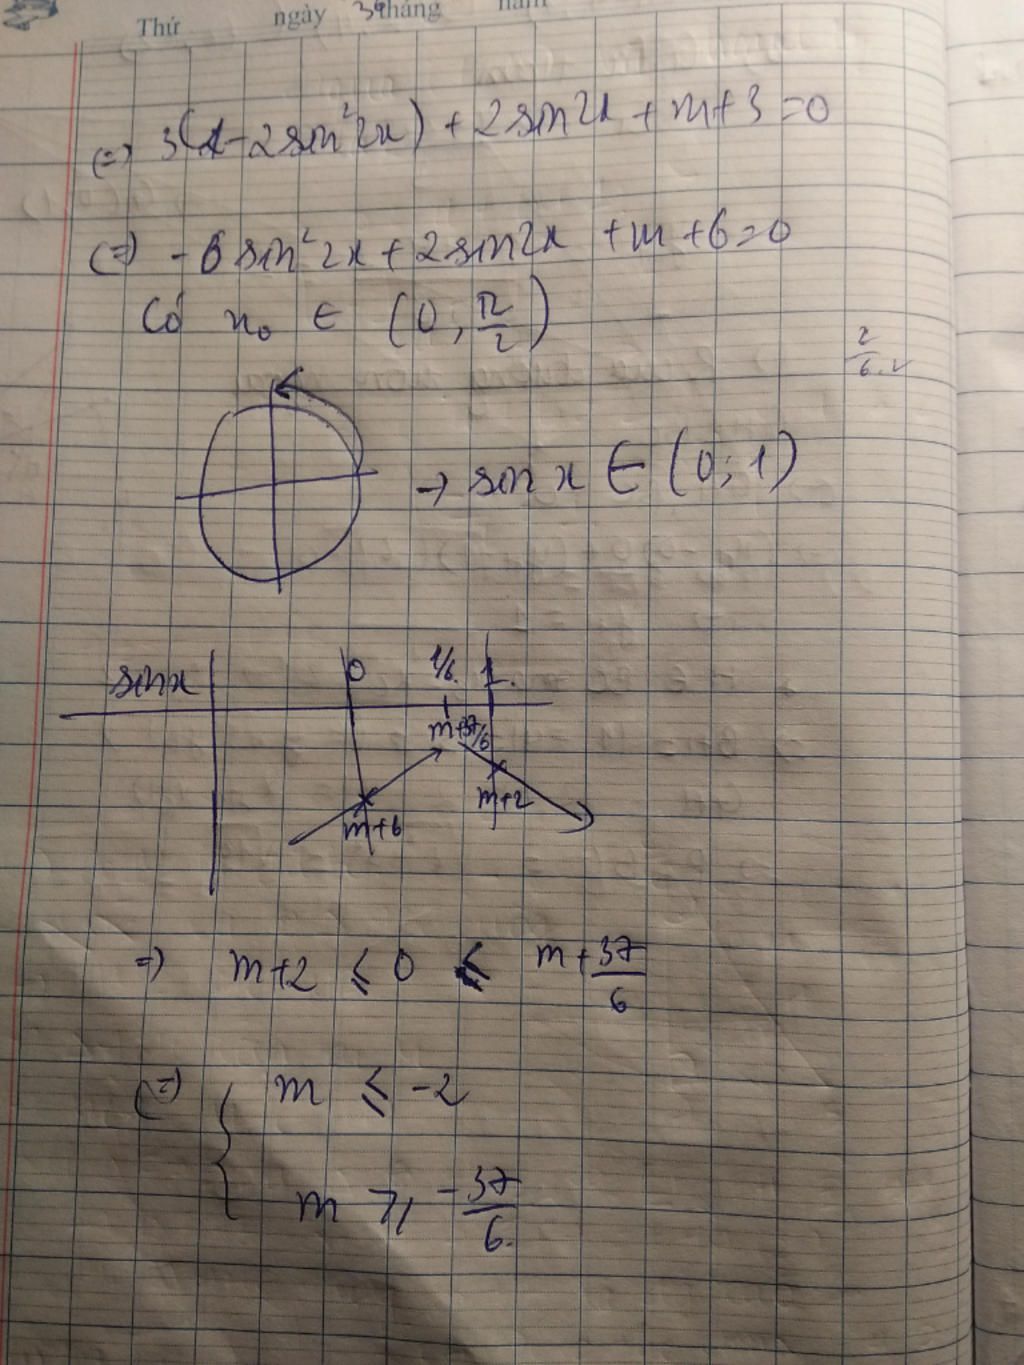 Thứ ngày tháng năm
(=) 3(1-2sin²2x) + 2sin2x + m+3 = 0
(=) -6sin²2x + 2sin2x + m+6=0
Có x₀ ∈ (0; π/2)
2/6.2
→ sin x ∈ (0; 1)
sinx 0 1/6. 1.
m+37/6
m+2
m+6
=) m+2 ⩽ 0 ⩽ m+37/6
(=) { m ⩽ -2
m ⩾ -37/6.